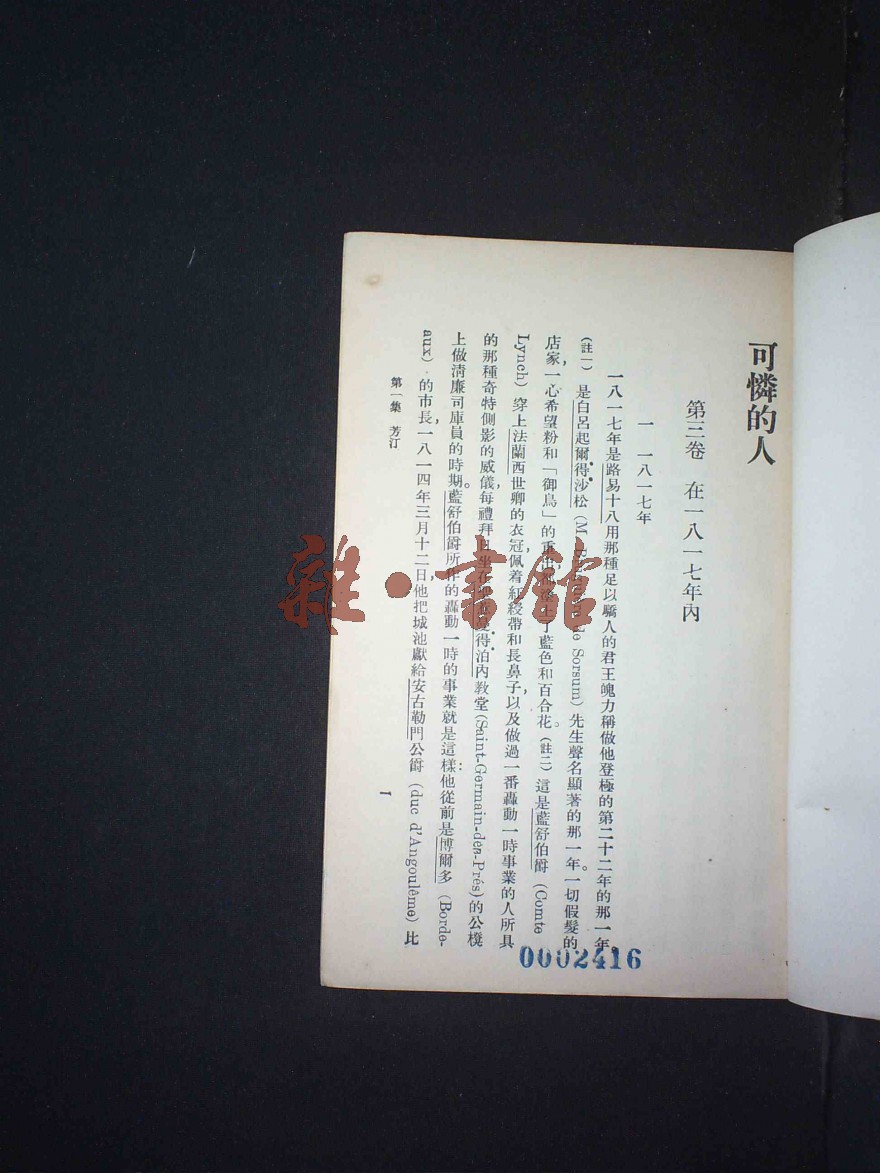 可憐的人
第三卷 在一八一七年內
一 一八一七年
一八一七年是路易十八用那種足以驕人的君王魄力稱做他登極的第二十二年的那一年。
（註一）是白呂起爾・得・沙松(M de Sorsum)先生聲名顯著的那一年。一切假髮的
店家，一心希望粉和「御鳥」的重 藍色和百合花。（註二）這是藍舒伯爵（Comte
Lynch）穿上法蘭西世卿的衣冠，佩着紅綬帶和長鼻子，以及做過一番轟動一時事業的人所具
的那種奇特側影的威儀，每禮拜日坐在 得・泊內教堂(Saint-Germain-des-Prés)的公櫈
上做淸廉司庫員的時期。藍舒伯爵所作的轟動一時的事業就是這樣：他從前是博爾多（Borde-
aux）的市長，一八一四年三月十二日，他把城池獻給安古勒門公爵（duc d'Angoulême）比
第一集 芳汀
1
0002416
雜・書館